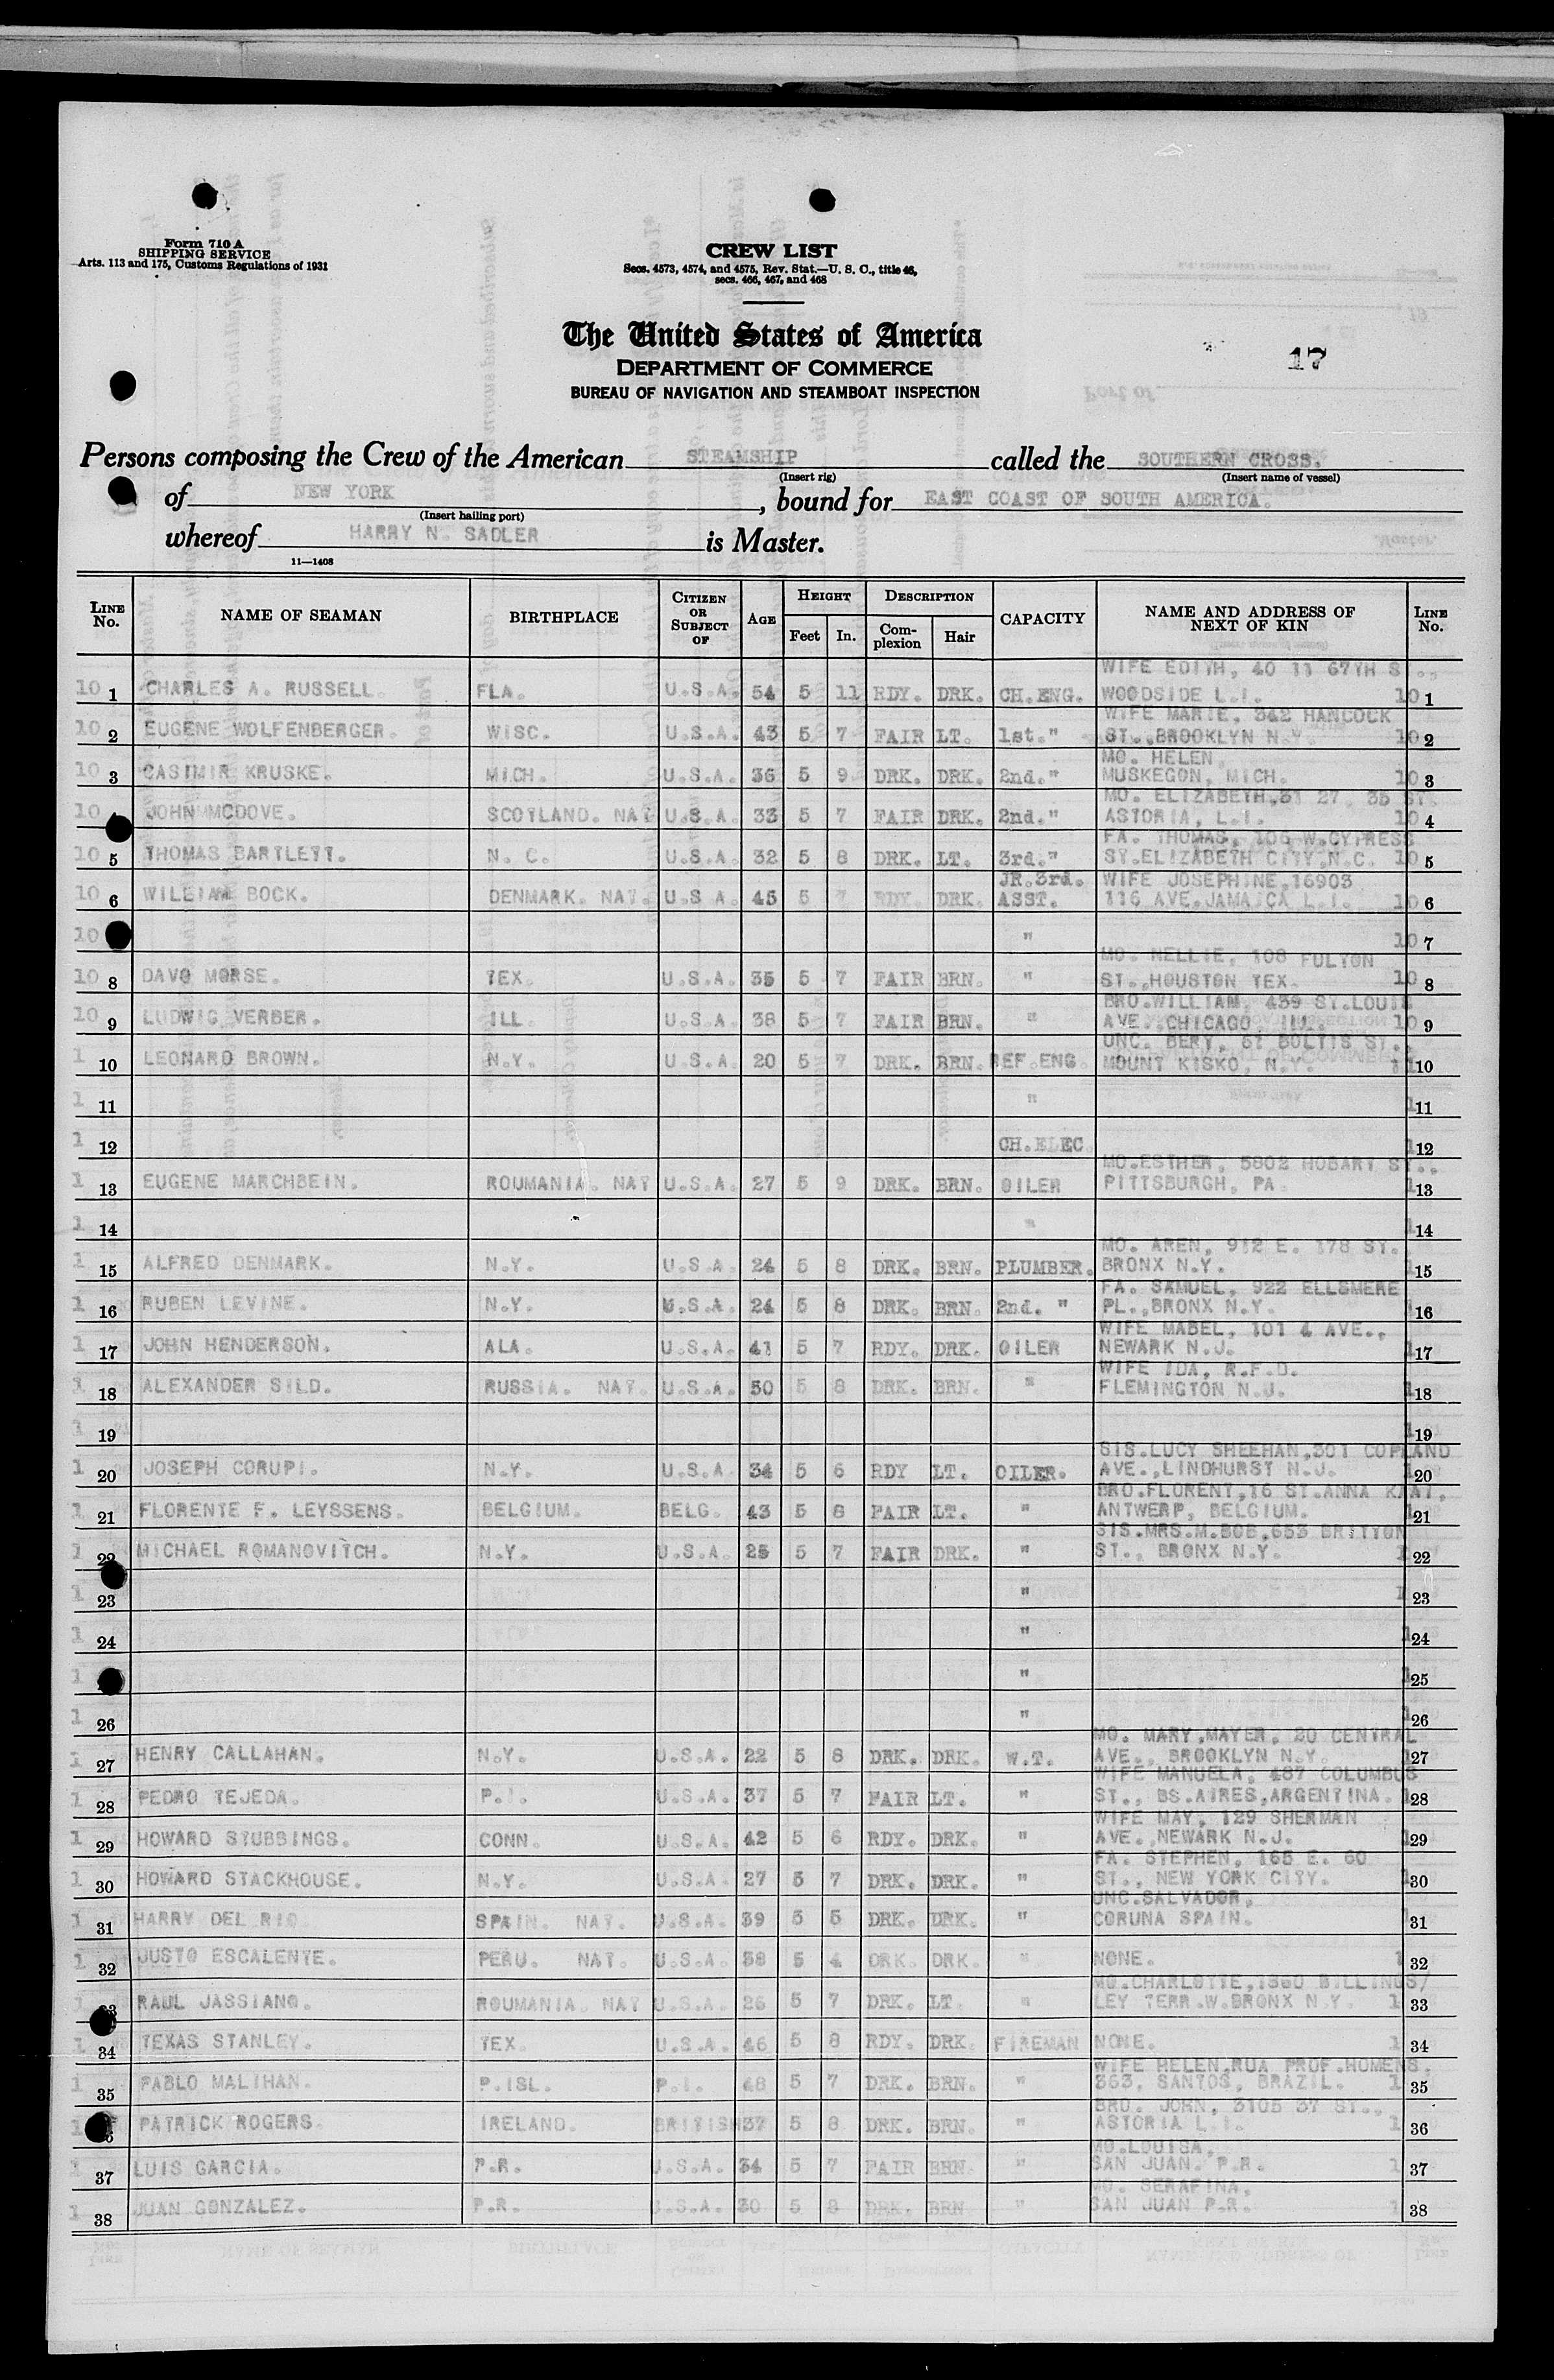 Form 710 A
SHIPPING SERVICE
Arts. 113 and 175, Customs Regulations of 1931
CREW LIST
Secs. 4573, 4574, and 4575, Rev. Stat.—U. S. C., title 46,
secs. 466, 467, and 468
The United States of America
DEPARTMENT OF COMMERCE
BUREAU OF NAVIGATION AND STEAMBOAT INSPECTION
17
Persons composing the Crew of the American STEAMSHIP called the SOUTHERN CROSS.
(Insert rig) (Insert name of vessel)
of NEW YORK, bound for EAST COAST OF SOUTH AMERICA.
(Insert hailing port)
whereof HARRY N. SADLER is Master.
11—1408
LINE No. NAME OF SEAMAN BIRTHPLACE CITIZEN OR SUBJECT OF AGE HEIGHT Feet In. DESCRIPTION Complexion Hair CAPACITY NAME AND ADDRESS OF NEXT OF KIN LINE No.
WIFE EDITH, 40 11 67TH S
10 1 CHARLES A. RUSSELL. FLA. U.S.A. 54 5 11 RDY. DRK. CH.ENG. WOODSIDE L.I. 10 1
WIFE MARIE, 342 HANCOCK
10 2 EUGENE WOLFENBERGER. WISC. U.S.A. 43 5 7 FAIR LT. 1st." ST.,BROOKLYN N.Y. 10 2
MO. HELEN,
10 3 CASIMIR KRUSKE. MICH. U.S.A. 36 5 9 DRK. DRK. 2nd." MUSKEGON, MICH. 10 3
MO. ELIZABETH,31 27 35 ST.
10 JOHN MCDOVE. SCOTLAND. NAT U.S.A. 33 5 7 FAIR DRK. 2nd." ASTORIA, L.I. 10 4
FA. THOMAS, 106 W.CYPRESS
10 5 THOMAS BARTLETT. N. C. U.S.A. 32 5 8 DRK. LT. 3rd." ST.ELIZABETH CITY,N.C. 10 5
JR.3rd. WIFE JOSEPHINE,16903
10 6 WILLIAM BOCK. DENMARK. NAT. U.S.A. 45 5 7 RDY. DRK. ASST. 116 AVE.JAMAICA L.I. 10 6
10 " 10 7
MO. NELLIE, 108 FULTON
10 8 DAVO MORSE. TEX. U.S.A. 35 5 7 FAIR BRN. " ST.,HOUSTON TEX. 10 8
BRO.WILLIAM, 439 ST.LOUIS
10 9 LUDWIG VERBER. ILL. U.S.A. 38 5 7 FAIR BRN. " AVE.,CHICAGO, ILL. 10 9
UNC. BERT, 61 BOLTIS ST.,
1 10 LEONARD BROWN. N.Y. U.S.A. 20 5 7 DRK. BRN. REF.ENG. MOUNT KISKO, N.Y. 110
1 11 " 11
1 12 CH.ELEC. 12
MO.ESTHER, 5802 HOBART ST.,
1 13 EUGENE MARCHBEIN. ROUMANIA. NAT U.S.A. 27 5 9 DRK. BRN. OILER PITTSBURGH, PA. 13
1 14 " 14
MO. AREN, 912 E. 178 ST.
1 15 ALFRED DENMARK. N.Y. U.S.A. 24 5 8 DRK. BRN. PLUMBER. BRONX N.Y. 15
FA. SAMUEL, 922 ELLSMERE
1 16 RUBEN LEVINE. N.Y. U.S.A. 24 5 8 DRK. BRN. 2nd. " PL.,BRONX N.Y. 16
WIFE MABEL, 101 4 AVE.,
1 17 JOHN HENDERSON. ALA. U.S.A. 41 5 7 RDY. DRK. OILER NEWARK N.J. 17
WIFE IDA, R.F.D.
1 18 ALEXANDER SILD. RUSSIA. NAT. U.S.A. 50 5 8 DRK. BRN. " FLEMINGTON N.J. 18
1 19 19
SIS.LUCY SHEEHAN,301 COPLAND
1 20 JOSEPH CORUPI. N.Y. U.S.A. 34 5 6 RDY LT. OILER. AVE.,LINDHURST N.J. 20
BRO.FLORENT,16 ST.ANNA
1 21 FLORENTE F. LEYSSENS. BELGIUM. BELG. 43 5 8 FAIR LT. " ANTWERP, BELGIUM. 21
SIS.MRS.M.BOB,653 BRITTON
1 22 MICHAEL ROMANOVITCH. N.Y. U.S.A. 25 5 7 FAIR DRK. " ST., BRONX N.Y. 22
1 23 " 23
1 24 " 24
1 " 25
1 26 " 26
MO. MARY,MAYER, 20 CENTRAL
1 27 HENRY CALLAHAN. N.Y. U.S.A. 22 5 8 DRK. DRK. W.T. AVE., BROOKLYN N.Y. 27
WIFE MANUELA, 487 COLUMBUS
1 28 PEDRO TEJEDA. P.I. U.S.A. 37 5 7 FAIR LT. " ST., BS.AIRES,ARGENTINA. 28
WIFE MAY, 129 SHERMAN
1 29 HOWARD STUBBINGS. CONN. U.S.A. 42 5 6 RDY. DRK. " AVE.,NEWARK N.J. 29
FA. STEPHEN, 165 E. 60
1 30 HOWARD STACKHOUSE. N.Y. U.S.A. 27 5 7 DRK. DRK. " ST., NEW YORK CITY. 30
UNC.SALVADOR,
1 31 HARRY DEL RIO SPAIN. NAT. U.S.A. 39 5 5 DRK. DRK. " CORUNA SPAIN. 31
1 32 JUSTO ESCALENTE. PERU. NAT. U.S.A. 38 5 4 DRK. DRK. " NONE. 32
MO.CHARLOTTE,1360 BILLINGS/
33 RAUL JASSIANO. ROUMANIA. NAT U.S.A. 26 5 7 DRK. LT. " LEY TERR.W.BRONX N.Y. 33
1 34 TEXAS STANLEY. TEX. U.S.A. 46 5 8 RDY. DRK. FIREMAN NONE. 34
WIFE HELEN,RUA PROF.HOMENS.
1 35 PABLO MALIHAN. P.ISL. P.I. 48 5 7 DRK. BRN. " 363, SANTOS, BRAZIL. 35
BRO. JOHN, 3105 37 ST.,
PATRICK ROGERS. IRELAND. BRITISH 37 5 8 DRK. BRN. " ASTORIA L.I. 36
MO.LOUISA,
1 37 LUIS GARCIA. P.R. U.S.A. 34 5 7 FAIR BRN. " SAN JUAN. P.R. 37
MO. SERAFINA,
1 38 JUAN GONZALEZ. P.R. U.S.A. 30 5 8 DRK. BRN " SAN JUAN P.R. 38